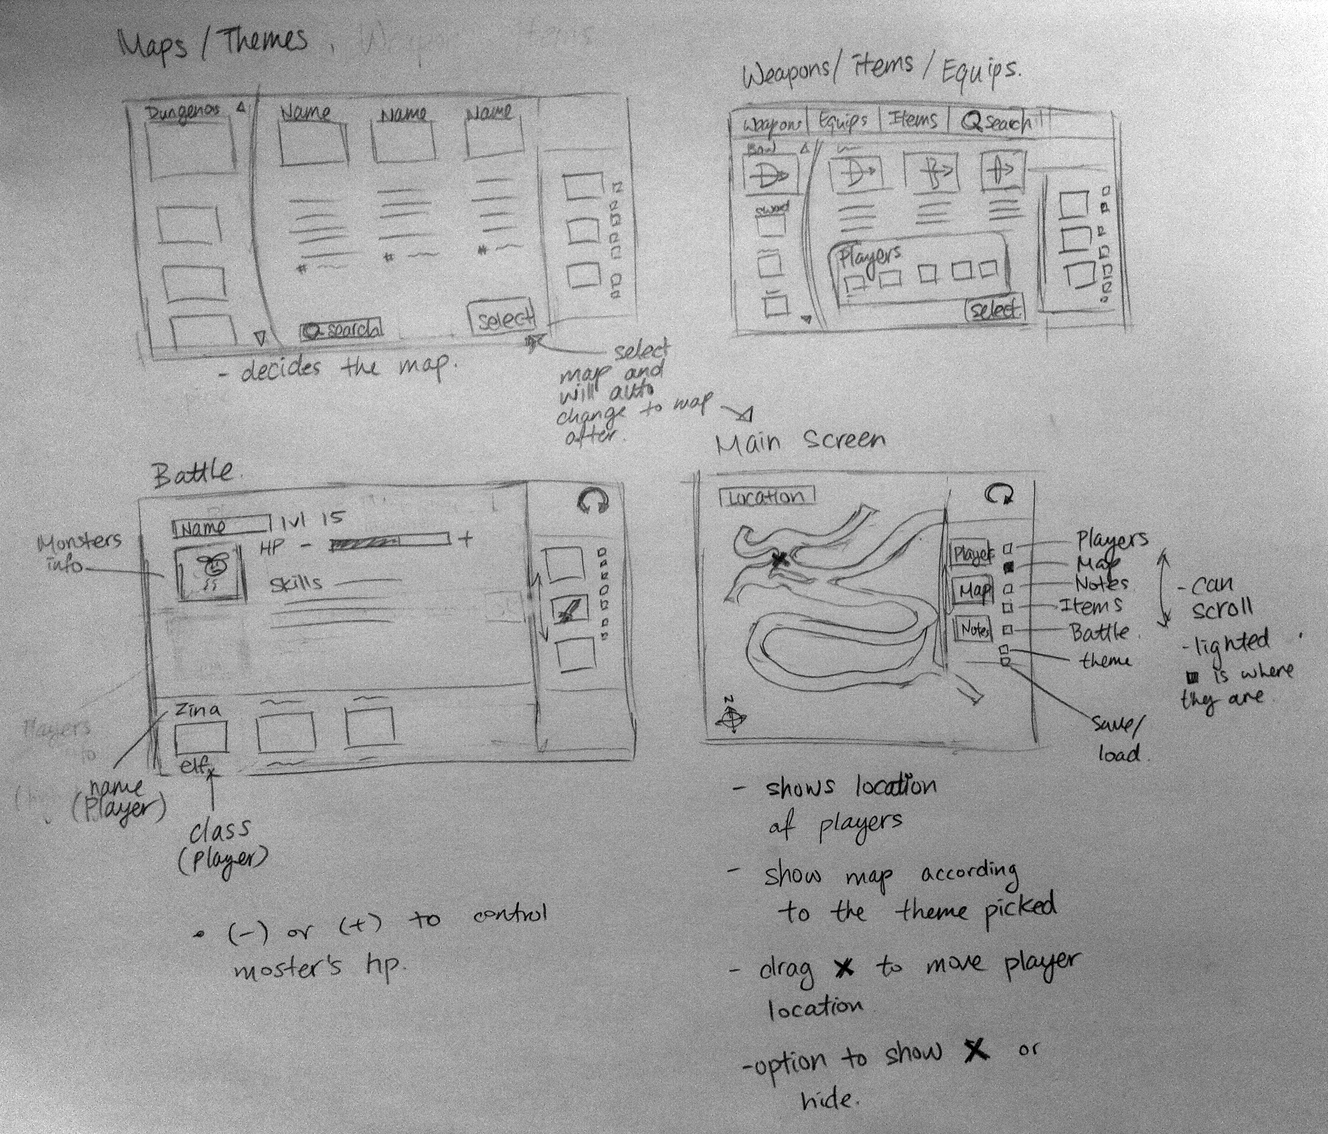 Maps / Themes, Weapon Items
Dungenos
Name
Name
Name
#
#
#
search
select
- decides the map.
select
map and
will auto
change to map
after.
Weapons / items / Equips.
Weapons
Equips
Items
search
Bow
sword
Players
select
Battle.
Name
lvl 15
HP - +
Skills
Monsters
info
Zina
elf
Players
name
(Player)
class
(Player)
• (-) or (+) to control
moster's hp.
Main Screen
Location
N
Player
Map
Notes
Players
Map
Notes
Items
Battle.
theme
save/
load.
- can
scroll
- lighted
■ is where
they are.
- shows location
of players
- show map according
to the theme picked
- drag X to move player
location
- option to show X or
hide.